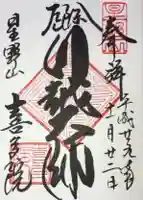 奉拝
平成廿九年
十一月廿二日
川越大師
星野山
喜多院